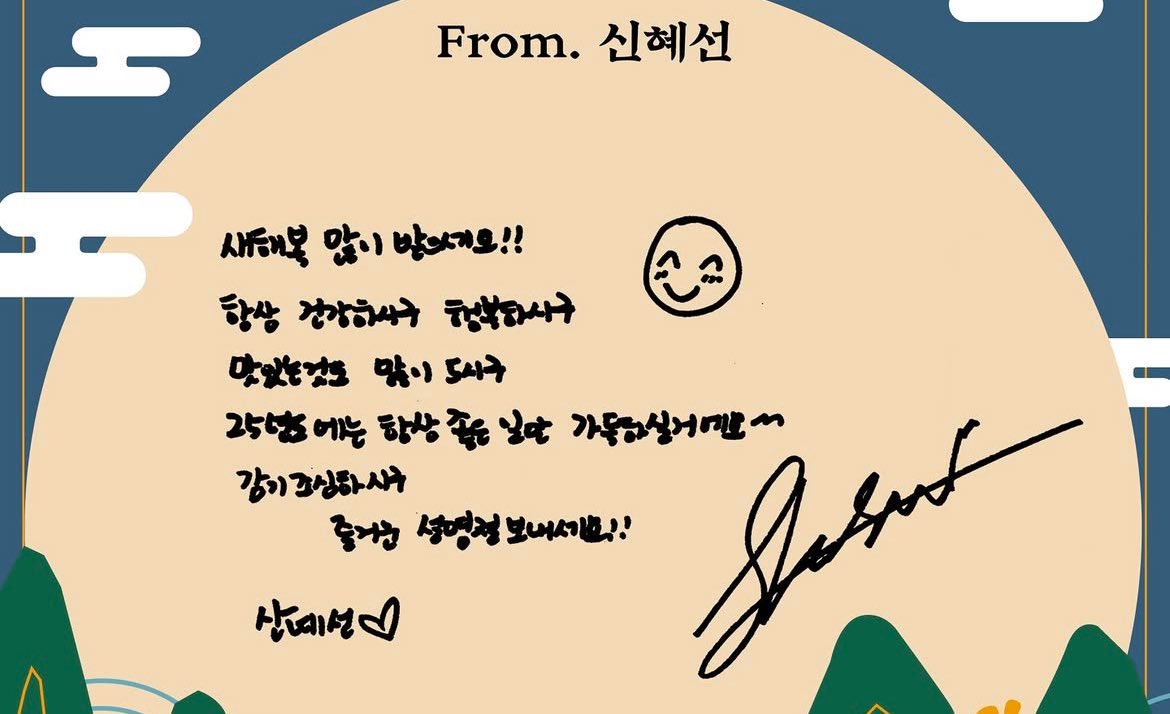 From. 신혜선
새해복 많이 받으세요!!
항상 건강하시구 행복하시구
맛있는것도 많이 드시구
25년도에는 항상 좋은 일만 가득하실거예요~
감기조심하시구
즐거운 설명절 보내세요!!
신혜선♡